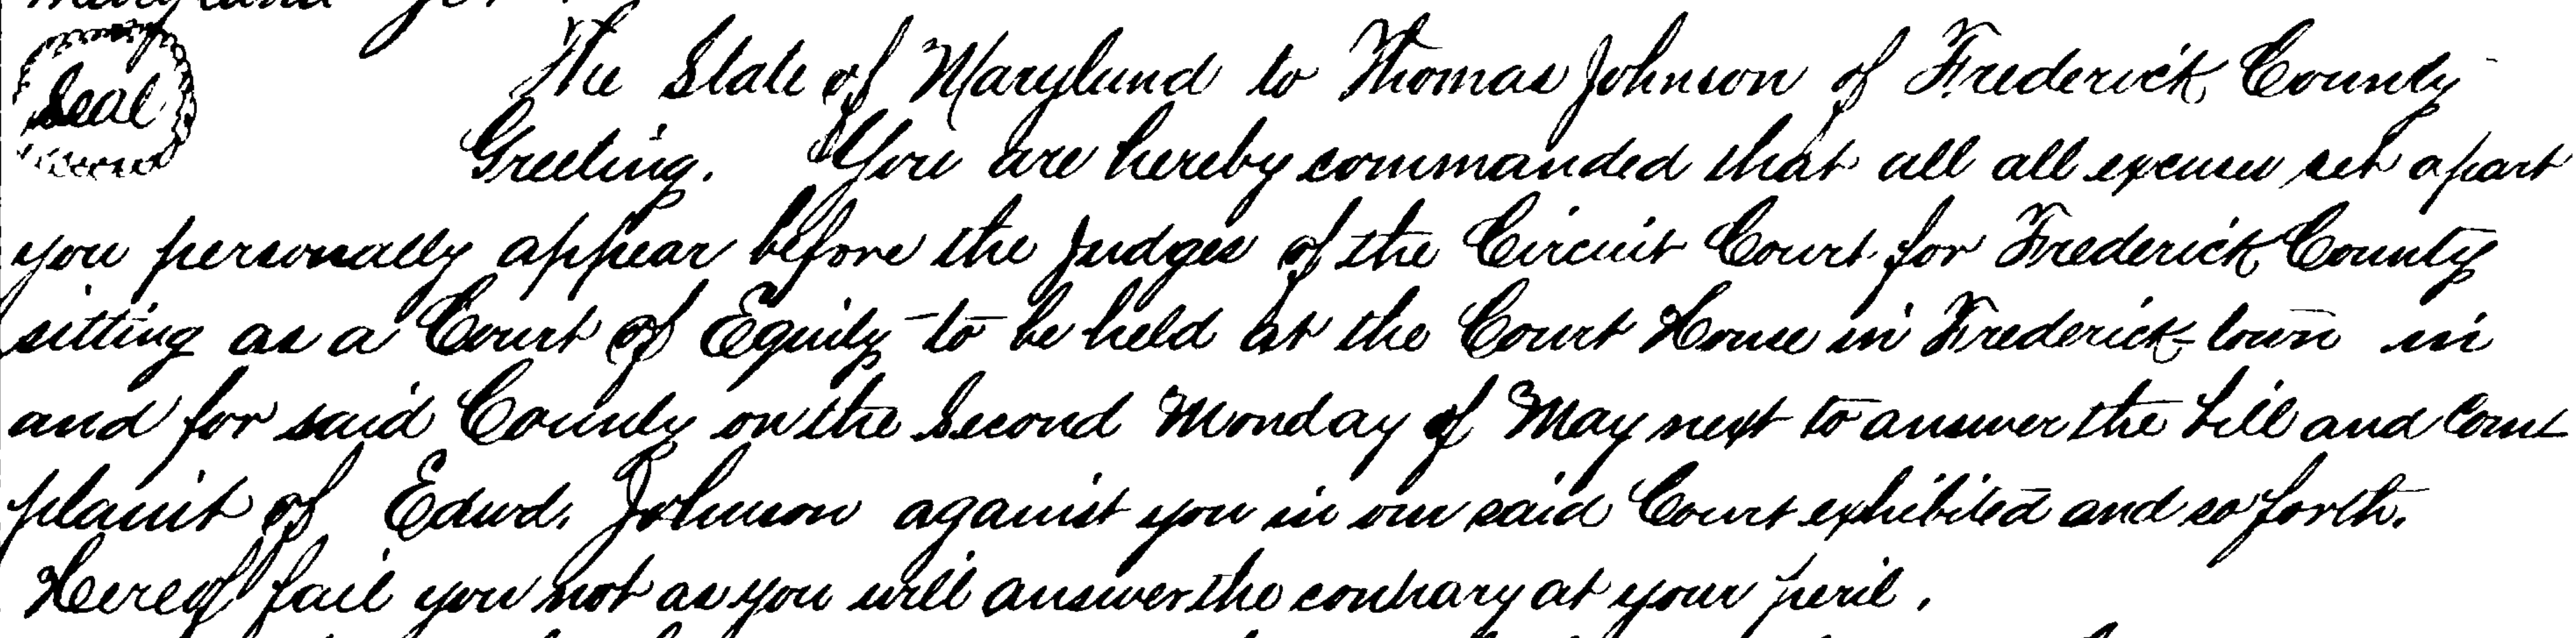 Seal
The State of Maryland to Thomas Johnson of Frederick County
Greeting. You are hereby commanded that all all excuses set apart
you personally appear before the Judges of the Circuit Court for Frederick County
sitting as a Court of Equity to be held at the Court House in Frederick-town in
and for said County on the Second Monday of May next to answer the bill and Com
plaint of Edwd. Johnson against you in our said Court exhibited and so forth.
Hereof fail you not as you will answer the contrary at your peril.